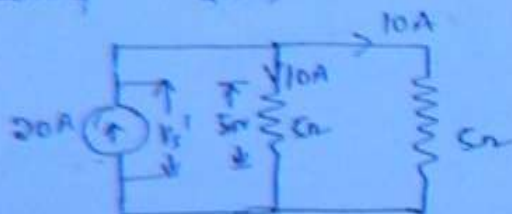 10A
10A
20A
Vs'
5Ω
5Ω